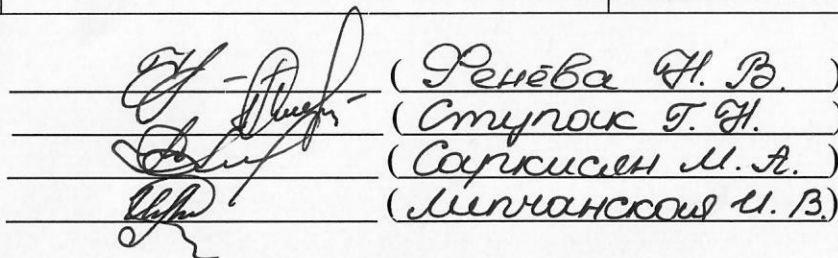 (Ренёва Н. В.)
(Ступак Г. Н.
(Саркисян М. А.)
(Липчанская И. В.)